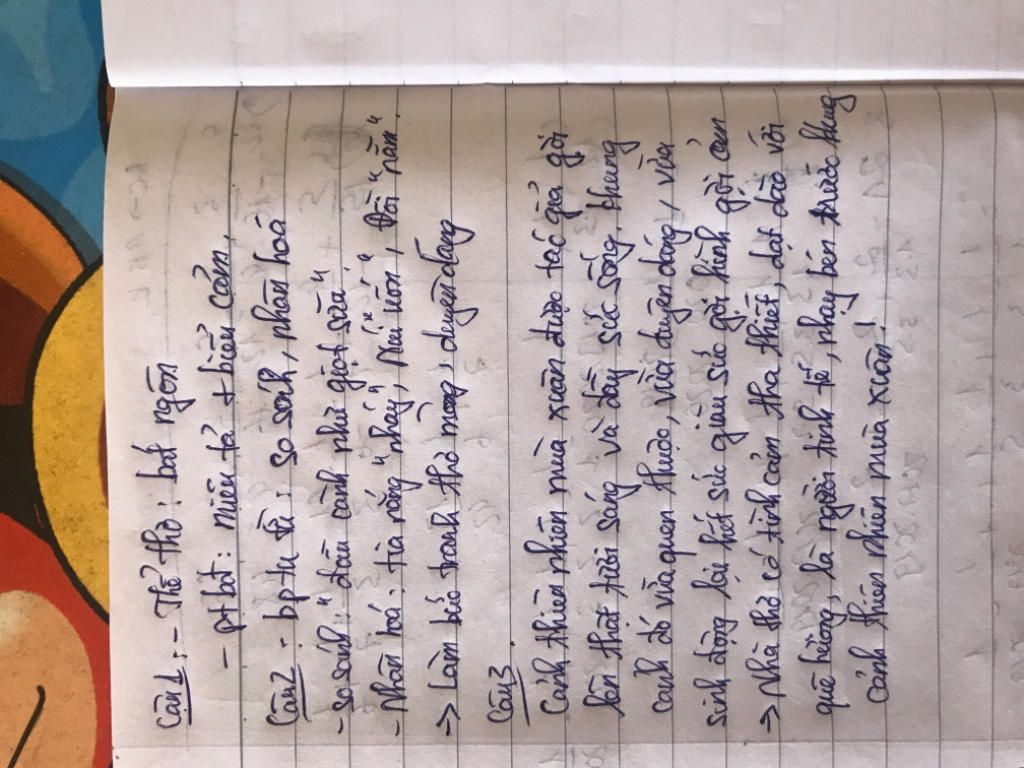 Câu 1: - Thể thơ: bát ngôn
- ptbđ: miêu tả + biểu cảm.
Câu 2: - bptu từ: so sánh, nhân hoá
- So sánh: "đầu cành như giọt sữa"
- Nhân hoá: tia nắng "nháy", núi uốn, đồi "nằm".
-> Làm bức tranh thơ mộng, duyên dáng
Câu 3.
Cảnh thiên nhiên mùa xuân được tác giả gợi
lên thật tươi sáng và đầy sức sống, khung
cảnh đó vừa quen thuộc, vừa duyên dáng, vừa
sinh động lại hết sức giàu sức gợi hình gợi cảm
-> Nhà thơ có tình cảm tha thiết, dạt dào với
quê hương, là người tinh tế, nhạy bén trước khung
cảnh thiên nhiên mùa xuân!